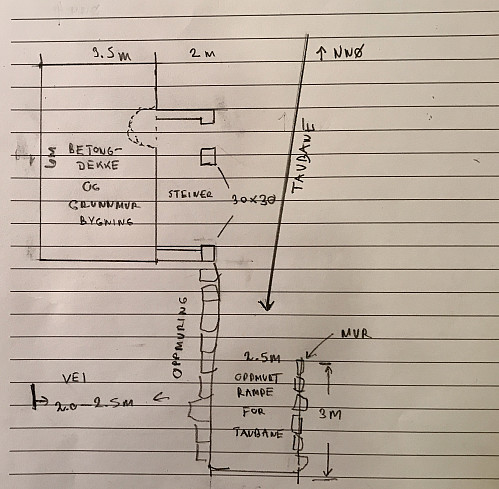 9.5 M
2 M
↑ NNØ
TAUBANE
6M
BETONG-
DEKKE
OG
GRUNNMUR
BYGNING
STEINER
30×30
OPPMURING
MUR
2.5M
OPPMURT
RAMPE
FOR
TAUBANE
3M
VEI
2.0-2.5M